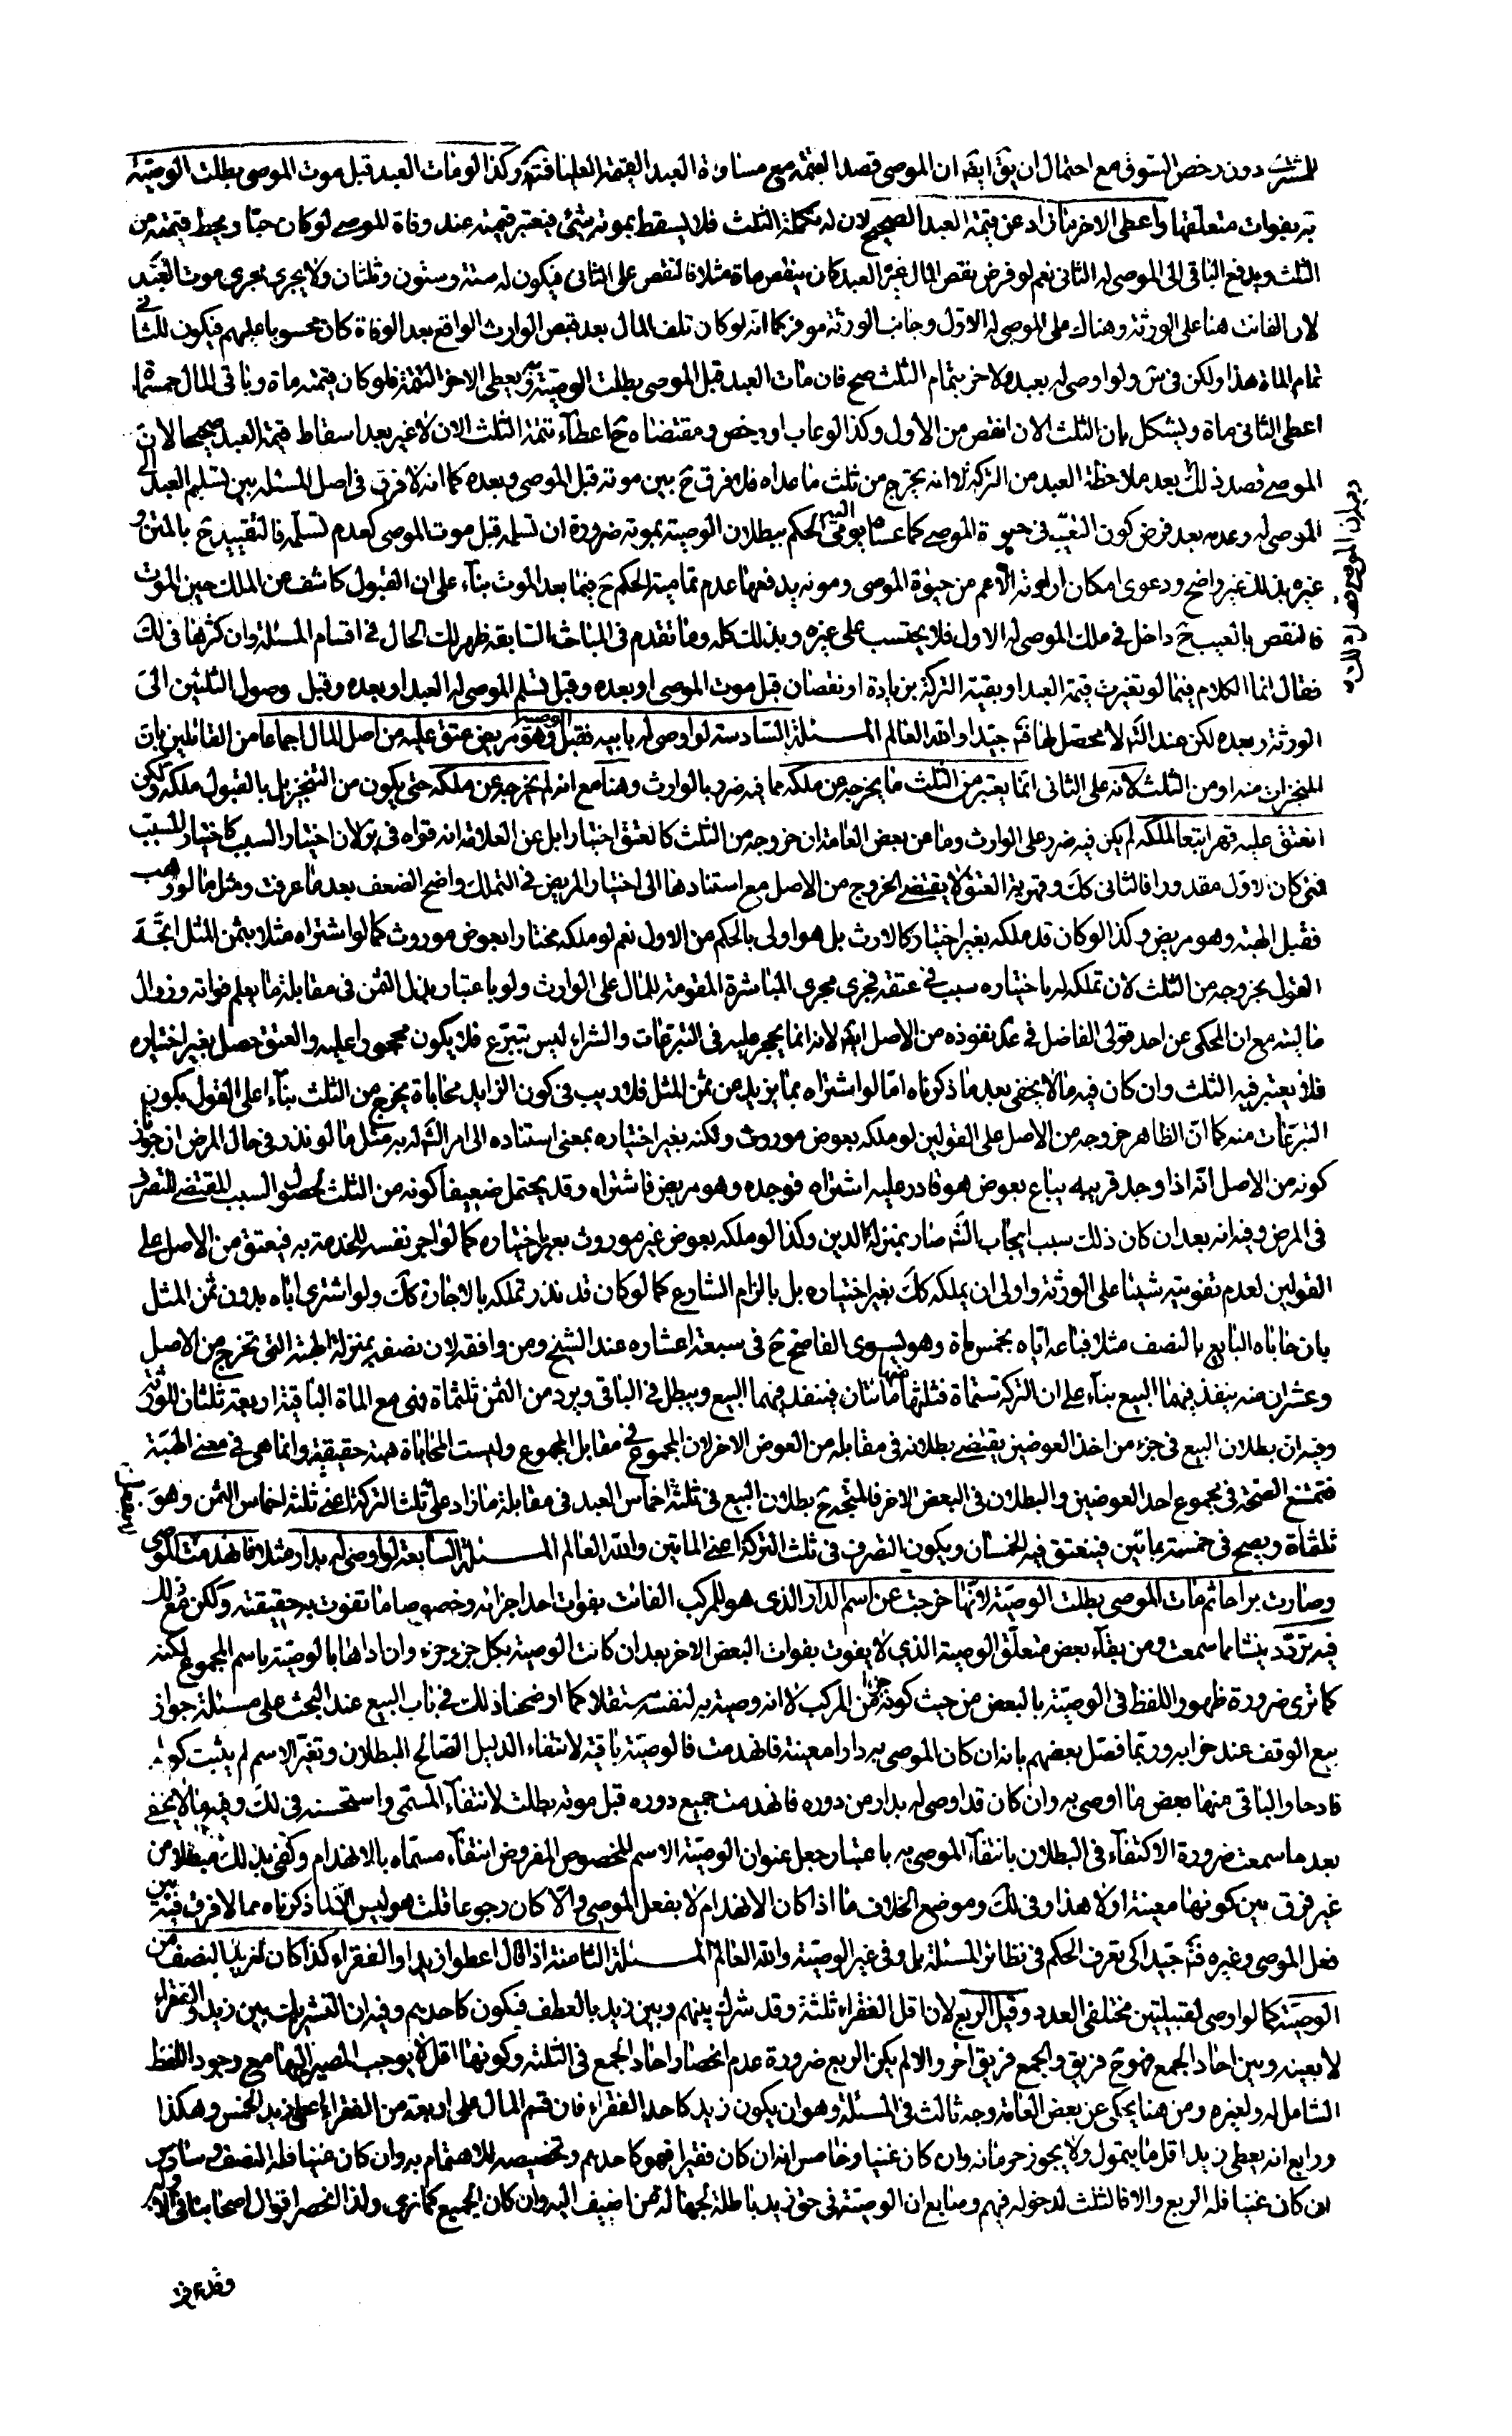 دون رخص السوق مع احتمال ان يق ايضا ان الموصى قصد القيمة مع مساواة العبد القيمة وكذا لو مات العبد قبل موت الموصى بطلت الوصية
به بفوات متعلقها واعطى الاخر ما زاد عن قيمة العبد الصحيح لان له تكملة الثلث فلا يسقط بموته شئ فيعتبر قيمته عند وفاة الموصى لو كان حيا ويحط قيمته من
الثلث ويدفع الباقى الى الموصى له الثانى نعم لو فرض نقص المال غير العبد كان ينقص ماة مثلا فالنقص على الثانى فيكون له ستة وستون وثلثان ولا يجرى مجرى موت العبد
لان الفائت هنا على الورثة وهناك على الموصى له الاول وجانب الورثة موفر كما انه لو كان تلف المال بعد قبض الوارث الواقع بعد الوفاة كان محسوبا عليهم فيكون للثانى
تمام الماة هذا ولكن فى ش ولو اوصى له بعبد ولاخر بتمام الثلث صح فان مات العبد قبل الموصى بطلت الوصية ويعطى الاخر التتمة فلو كان قيمته ماة وباقى المال خمسماة
اعطى الثانى ماة ويشكل بان الثلث الان انقص من الاول وكذا لو عاب او رخص ومقتضاه ح اعطاء تتمة الثلث الان لا غير بعد اسقاط قيمة العبد صحيحا لان
الموصى قصد ذلك بعد ملاحظة العبد من التركة لا انه يخرج من ثلث ما عداه فلا فرق ح بين موته قبل الموصى وبعده كما انه لا فرق فى اصل المسئلة بين تسليم العبد الى
الموصى له وعدمه بعد فرض كون التعيب فى حيوة الموصى كما عساه يومى اليه الحكم ببطلان الوصية بموته ضرورة ان تسلمه قبل موت الموصى كعدم تسلمه فالتقييد ح بالمتن و
غيره بذلك غير واضح ودعوى امكان ارادته الاعم من حيوة الموصى وموته يدفعها عدم تمامية الحكم ح فيما بعد الموت بناء على ان القبول كاشف عن الملك حين الموت
فالنقص بالعيب ح داخل فى ملك الموصى له الاول فلا يحتسب على غيره وبذلك كله وما تقدم فى المباحث السابقة ظهر لك الحال فى اقسام المسئلة وان كثرها فى لك
فقال انما الكلام فيما لو تغيرت قيمة العبد او بقية التركة بزيادة او نقصان قبل موت الموصى او بعده وقبل تسلم الموصى له العبد او بعده وقبل وصول الثلثين الى
الورثة وبعده لكن عند لا محصل لها جيدا والله العالم المسئلة السادسة لو اوصى له بابيه فقبل الوصية وهو مريض عتق عليه من اصل المال اجماعا من القائلين بان
المنجزات منه او من الثلث لانه على الثانى انما يعتبر من الثلث ما يخرجه عن ملكه مما فيه ضرر بالوارث وهنا مع انه لم يخرجه عن ملكه حتى يكون من التنجيز بل بالقبول ملكه ولكن
انعتق عليه قهرا تبعا لملكه لم يكن فيه ضرر على الوارث وما من بعض العامة ان خروجه من الثلث كالعتق اختيارا بل عن العلامة انه قواه فى ير لان اختيار السبب كاختيار المسبب
فمتى كان الاول مقدورا فالثانى كك وقهرية العتق لا يقتضى الخروج من الاصل مع استنادها الى اختيار المريض فى التملك واضح الضعف بعد ما عرفت ومثل ما لو وهب
فقبل الهبة وهو مريض وكذا لو كان قد ملكه بغير اختيار كالارث بل هو اولى بالحكم من الاول نعم لو ملكه مختارا بعوض موروث كما لو اشتراه مثلا بثمن المثل اتجه
القول بخروجه من الثلث لان تملكه له باختياره سبب فى عتقه فجرى مجرى المباشرة المفوتة للمال على الوارث ولو باعتبار بذل الثمن فى مقابلة ما يعلم فواته وزوال
ماليته مع ان المحكى عن احد قولى الفاضل فى عد نفوذه من الاصل ايض لانه انما يحجر عليه فى التبرعات والشراء ليس بتبرع فلا يكون محجورا عليه والعتق حصل بغير اختياره
فلا يعتبر فيه الثلث وان كان فيه ما لا يخفى بعد ما ذكرناه اما لو اشتراه بما يزيد من ثمن المثل فلا ريب فى كون الزايد محاباة يخرج من الثلث بناء على القول بكون
التبرعات منه كما ان الظاهر خروجه من الاصل على القولين لو ملكه بعوض موروث ولكنه بغير اختياره بمعنى استناده الى امر الش له به مثل ما لو نذر فى حال المرض ان جوزنا
كونه من الاصل انه اذا وجد قريبه يباع بعوض هو قادر عليه اشتراه فوجده وهو مريض فاشتراه وقد يحتمل ضعيفا كونه من الثلث لحصول السبب المقتضى للتصرف
فى المرض وفيه انه بعد ان كان ذلك سبب ايجاب الش صار بمنزلة الدين وكذا لو ملكه بعوض غير موروث بعد باختياره كما لو اجر نفسه للخدمة به فيعتق من الاصل على
القولين لعدم تفويته شيئا على الورثة واولى ان يملكه كك بغير اختياره بل بالزام الشارع كما لو كان قد نذر تملكه بالاجارة كك ولو اشترى اباه بدون ثمن المثل
بان حاباه البايع بالنصف مثلا فباعه اياه بخمسماة وهو يسوى الفا صح ح فى سبعة اعشاره عند الشيخ ومن وافقه لان نصفه بمنزلة الهبة التى تخرج من الاصل
وعشران منه ينفذ فيهما البيع بناء على ان التركة ستماة فثلثها ماتان فينفذ فيهما البيع ويبطل فى الباقى ويرد من الثمن ثلثماة وهى مع الماة الباقية اربعة ثلثان للورثة
وفيه ان بطلان البيع فى جزء من احد العوضين يقتضى بطلانه فى مقابله من العوض الاخر لان المجموع فى مقابل المجموع وليست المحاباة هبة حقيقية وانما هى فى معنى الهبة
فتمتنع الصحة فى مجموع احد العوضين والبطلان فى البعض الاخر فالمتجه ح بطلان البيع فى ثلثة اخماس العبد فى مقابلة ما زاد على ثلث التركة اعنى ثلثة اخماس الثمن وهو
ثلثماة ويصح فى خمسيه بماتين فينعتق فيه الخمسان ويكون التصرف فى ثلث التركة اعنى الماتين والله العالم المسئلة السابعة لو اوصى له بدار مثلا فانهدمت الموصى
وصارت براحا ثم مات الموصى بطلت الوصية لانها خرجت عن اسم الدار الذى هو للمركب الفائت بفوات احد اجزائه وخصوصا ما تقوت به حقيقته ولكن مع ذلك
فيه تردد ينشا مما سمعت ومن بقاء بعض متعلق الوصية الذى لا يفوت بفوات البعض الاخر بعد ان كانت الوصية بكل جزء جزء وان اداها بالوصية باسم المجموع لكنه
كما ترى ضرورة ظهور اللفظ فى الوصية بالبعض من حيث كونه جزءا من المركب لا انه وصية به لنفسه مستقلا كما اوضحنا ذلك فى باب البيع عند البحث على مسئلة جواز
بيع الوقف عند خرابه وربما فصل بعضهم بانه ان كان الموصى به دارا معينة فانهدمت فالوصية باقية لانتفاء الدليل الصالح للبطلان وتغير الاسم لم يثبت كونه
قادحا والباقى منها بعض ما اوصى به وان كان قد اوصى له بدار من دوره فانهدمت جميع دوره قبل موته بطلت لانتفاء المسمى واستحسنه فى لك وفيه ما لا يخفى
بعد ما سمعت ضرورة الاكتفاء فى البطلان بانتفاء الموصى به باعتبار جعل عنوان الوصية الاسم المخصوص المفروض انتفاء مسماه بالانهدام وكفى بذلك مبطلا من
غير فرق بين كونها معينة او لا هذا وفى لك وموضع الخلاف ما اذا كان الانهدام لا بفعل الموصى والا كان رجوعا قلت هو ليس الا لما ذكرناه مما لا فرق فيه بين
فعل الموصى وغيره جيدا كى تعرف الحكم فى نظائر المسئلة بل وفى غير الوصية والله العالم المسئلة الثامنة اذا قال اعطوا زيدا والفقراء كذا كان لزيد النصف من
الوصية كما لو اوصى لقبيلتين مختلفى العدد وقيل الربع لان اقل الفقراء ثلثة وقد شرك بينهم وبين زيد بالعطف فيكون كاحدهم وفيه ان التشريك بين زيد والفقراء
لا بعينه وبين احاد الجمع فهو ح فريق والجمع فريق اخر والا لم يكن الربع ضرورة عدم انحصار احاد الجمع فى الثلثة وكونها اقل لا يوجب المصير اليها مع وجود اللفظ
الشامل له ولغيره ومن هنا يحكى عن بعض العامة وجه ثالث فى المسئلة وهو ان يكون زيد كاحد الفقراء فان قسم المال على اربعة من الفقراء اعطى زيد الخمس وهكذا
ورابع انه يعطى زيد اقل ما يتمول ولا يجوز حرمانه وان كان غنيا وخامس انه ان كان فقيرا فهو كاحدهم وتخصيصه للاهتمام به وان كان غنيا فله النصف وسادس
ان كان غنيا فله الربع والا فالثلث لدخوله فيهم وسابع ان الوصية فى حق زيد باطلة لجهالة من اضيف اليه وان كان الجميع كما ترى ولذا انحصر اقوال اصحابنا فى